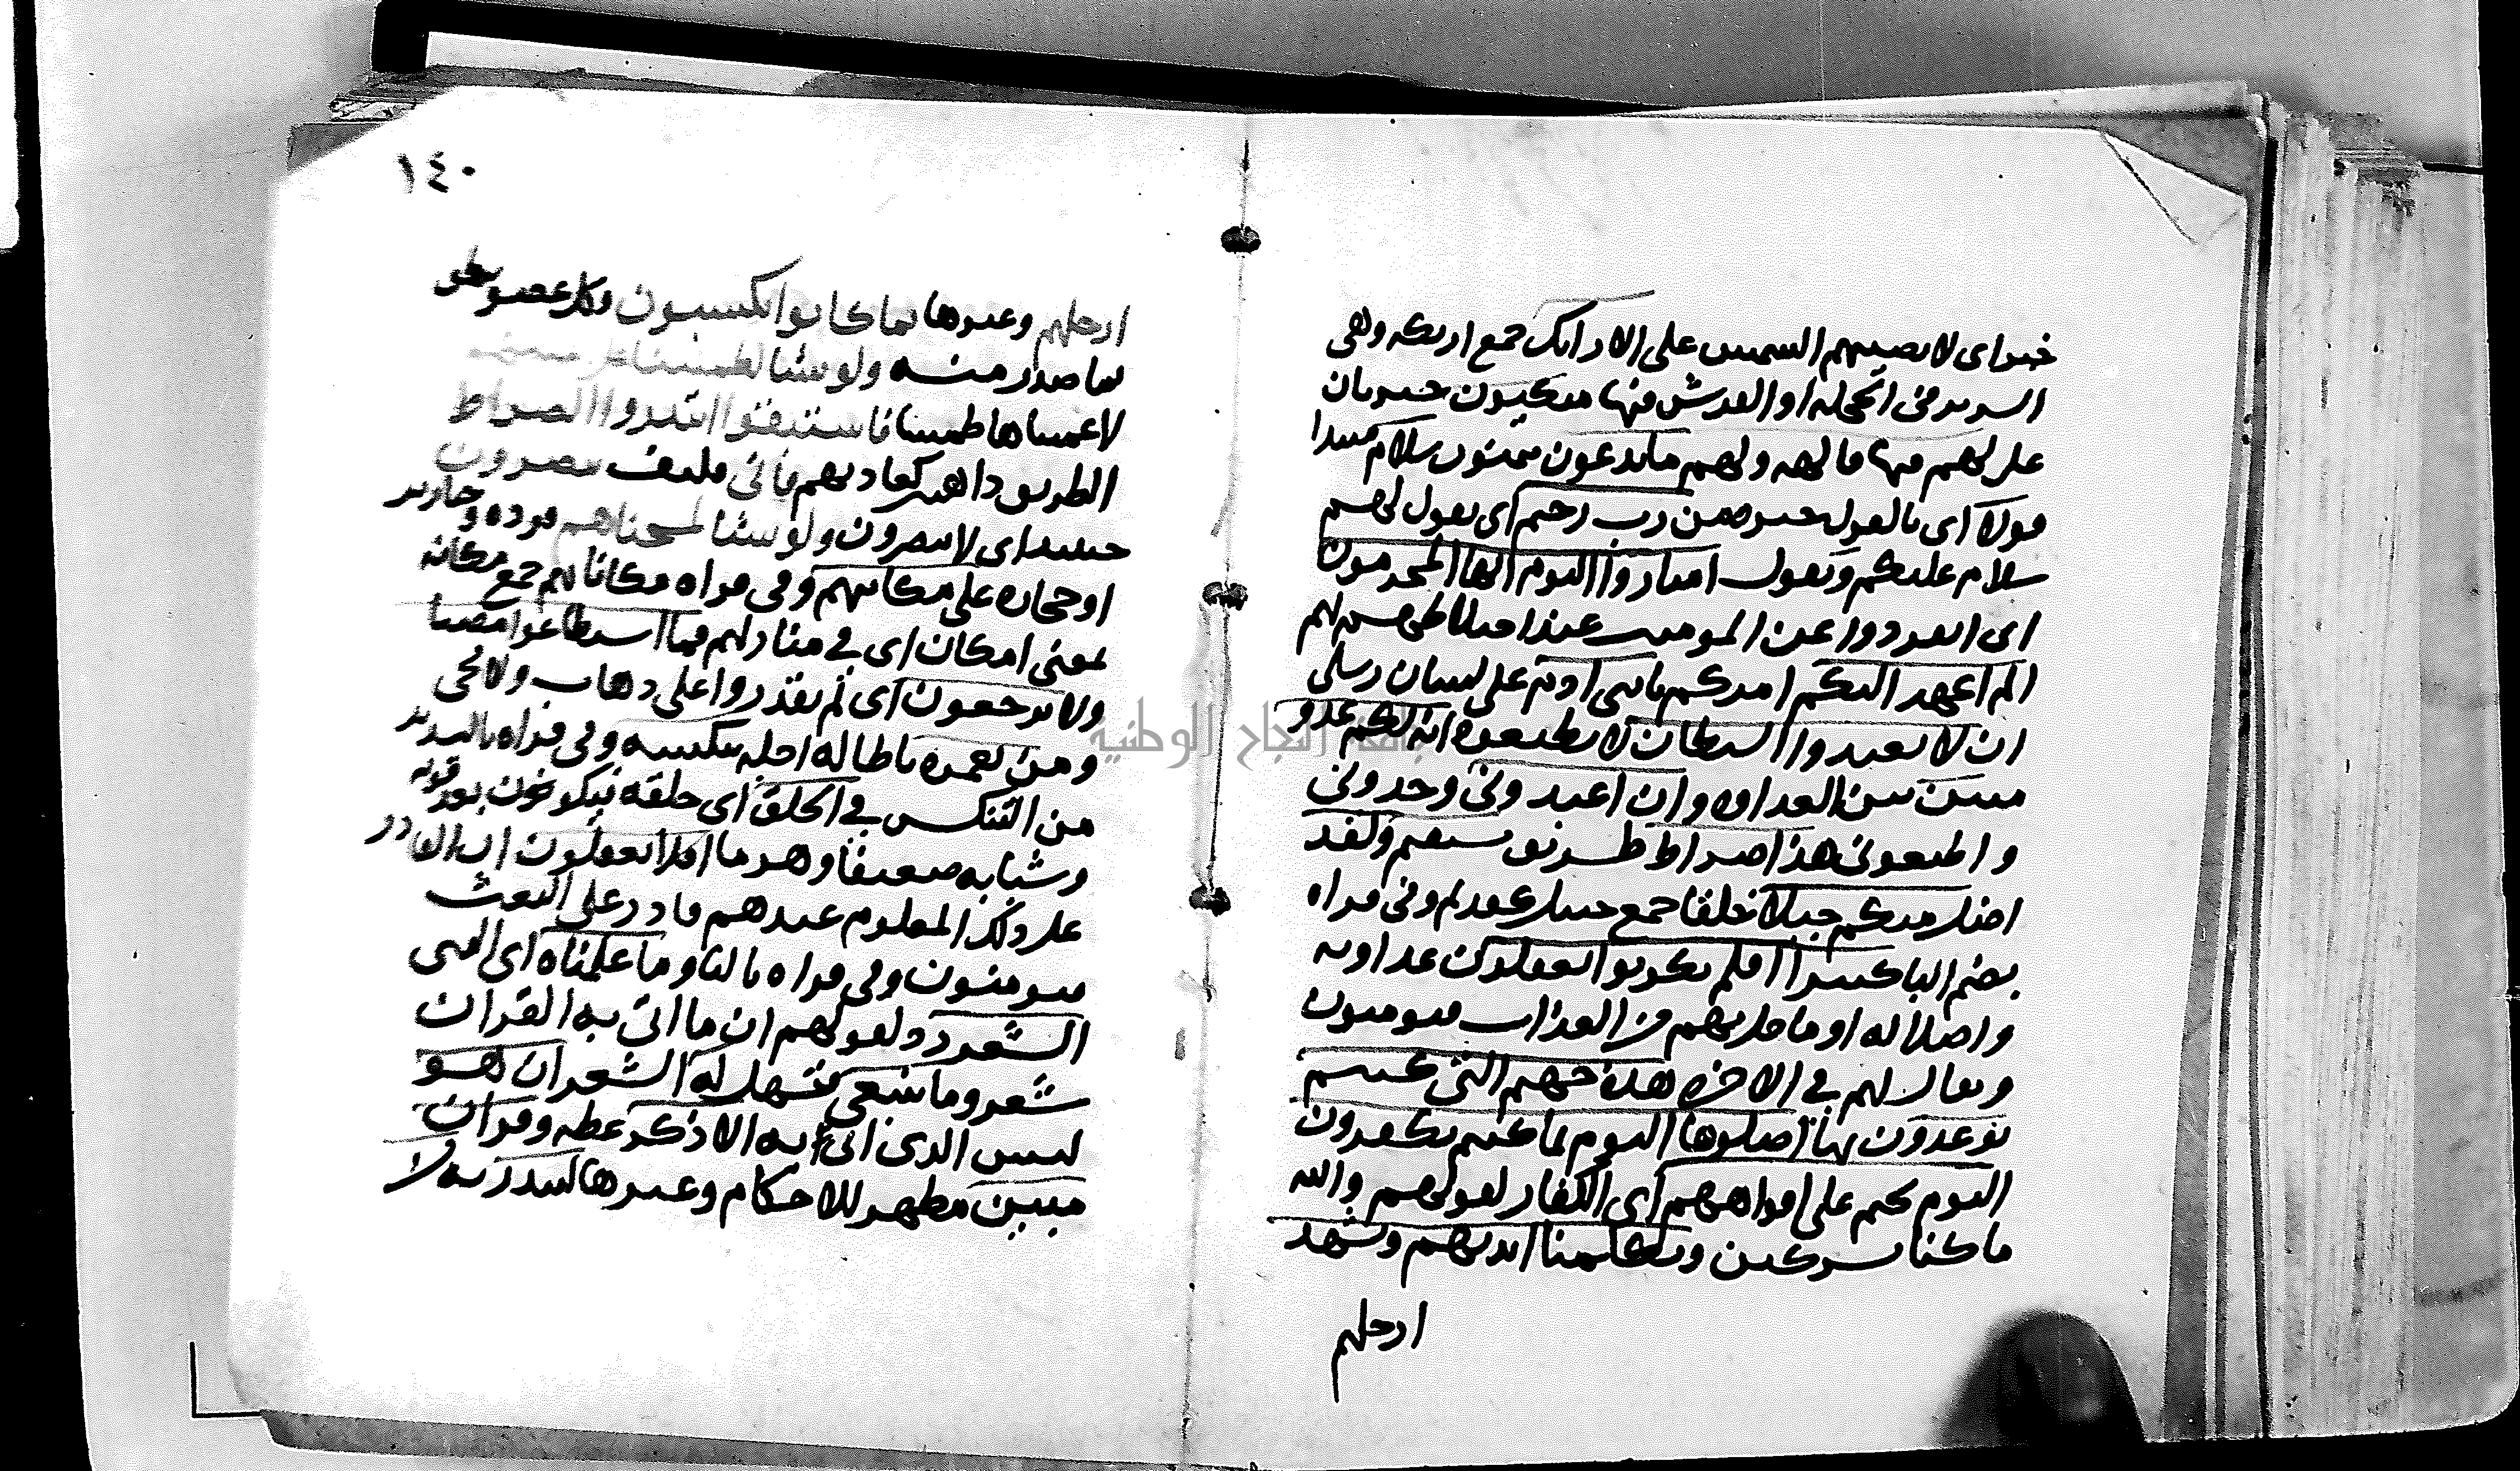 خبر اى لا تصيبهم الشمس على الارائك جمع اريكه وهى
السرير فى الحجله او الفرش فيها متكيون خبر ثان
على لهم فيها فاكهه ولهم ما يدعون يتمنون سلام مبتدا
قولا اى بالقول خبره من رب رحيم اى يقول لهم
سلام عليكم ويقول امتازوا اليوم ايها المجرمون
اى انفردوا عن المومنين عند اختلاطهم بهم
الم اعهد اليكم امركم يا بنى ادم على لسان رسلى
ان لا تعبدوا الشيطان لا تطيعوه انه لكم عدو
مبين بين العداوه وان اعبدونى وحدونى
واطيعونى هذا صراط طريق مستقيم ولقد
اضل منكم جبلا خلقا جمع جبيل كقديم وفى قراه
بضم البا كثيرا افلم تكونوا تعقلون عداوته
واضلاله او ما حل بهم من العذاب فتومنون
ويقال لهم فى الاخره هذه جهنم التى كنتم
توعدون بها اصلوها اليوم بما كنتم تكفرون
اليوم نختم على افواههم اى الكفار لقولهم والله
ما كنا مشركين وتكلمنا ايديهم وتشهد
ارجلهم
١٤٠
ارجلهم وغيرها بما كانوا يكسبون فكل عضو ينطق
بما صدر منه ولو نشا لطمسنا على اعينهم
لاعميناها طمسا فاستبقوا ابتدروا الصراط
الطريق ذاهبين كعادتهم فانى فكيف يبصرون
حينيذ اى لا يبصرون ولو نشا لمسخناهم قرده وخنازير
او حجاره على مكانتهم وفى قراه مكاناتهم جمع مكانه
بمعنى مكان اى فى منازلهم فما استطاعوا مضيا
ولا يرجعون اى لم يقدروا على ذهاب ولا مجى
ومن نعمره باطاله اجله ننكسه وفى قراه بالتشديد
من التنكيس فى الخلق اى خلقه فيكون بعد قوته
وشبابه ضعيفا وهرما افلا تعقلون ان القادر
على ذلك المعلوم عندهم قادر على البعث
فيومنون وفى قراه بالتا وما علمناه اى النبى
الشعر رد لقولهم ان ما اتى به القران
شعر وما ينبغى يتسهل له الشعر ان هو
ليس الذى اتى به الا ذكر عظه وقران
مبين مظهر للاحكام وغيرها لينذر به لا
جامعة النجاح الوطنية